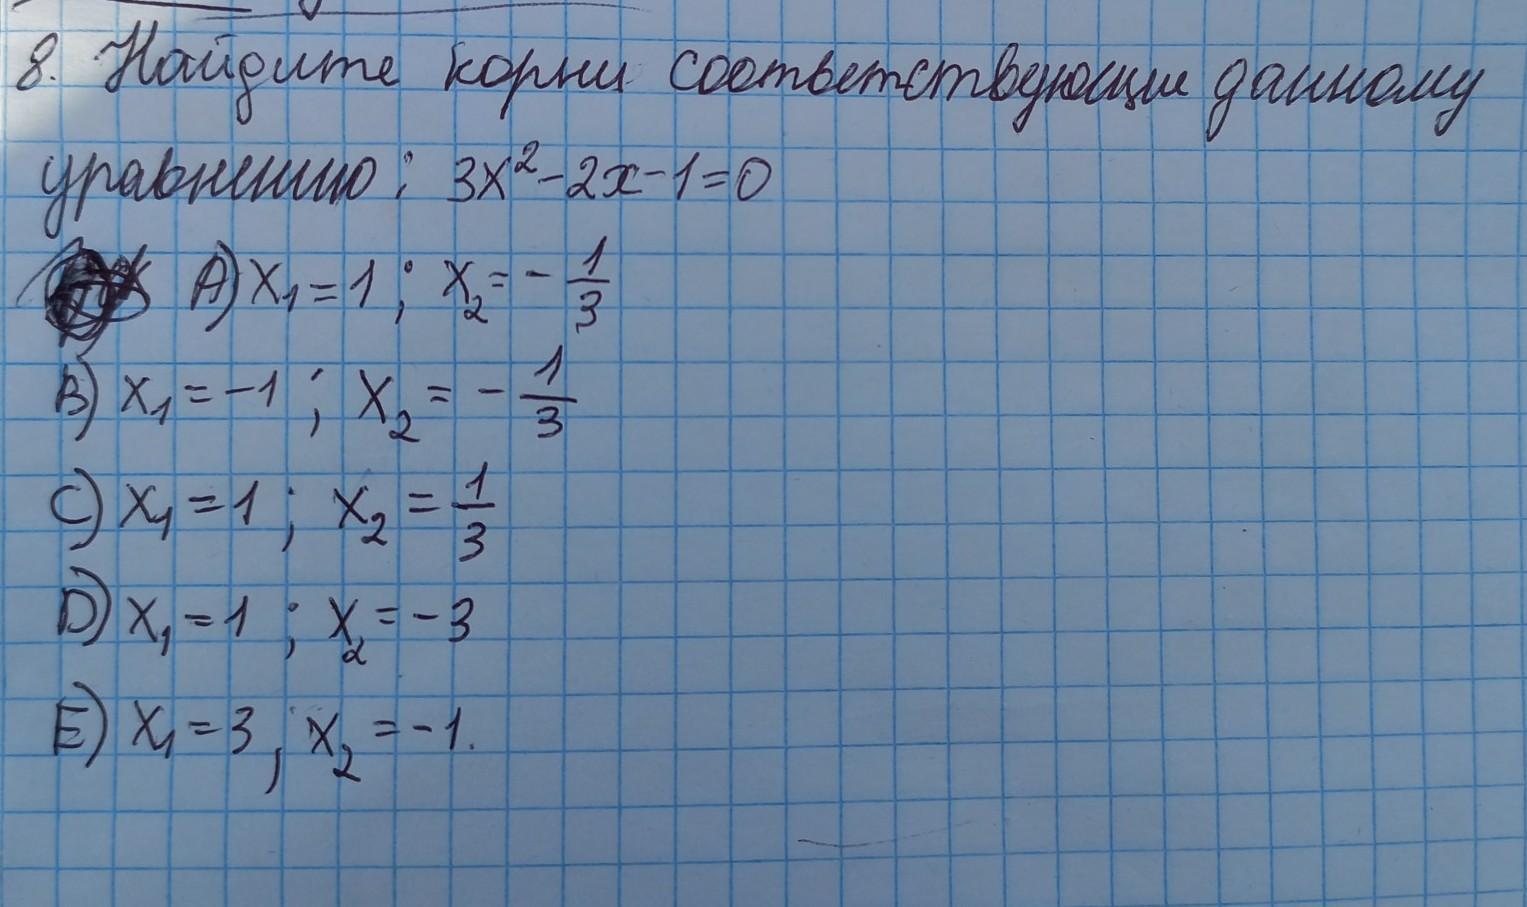 8. Найдите корни соответствующие данному
уравнению: 3x²-2x-1=0
A) x₁=1; x₂=-1/3
B) x₁=-1; x₂=-1/3
C) x₁=1; x₂=1/3
D) x₁=1; x₂=-3
E) x₁=3; x₂=-1.